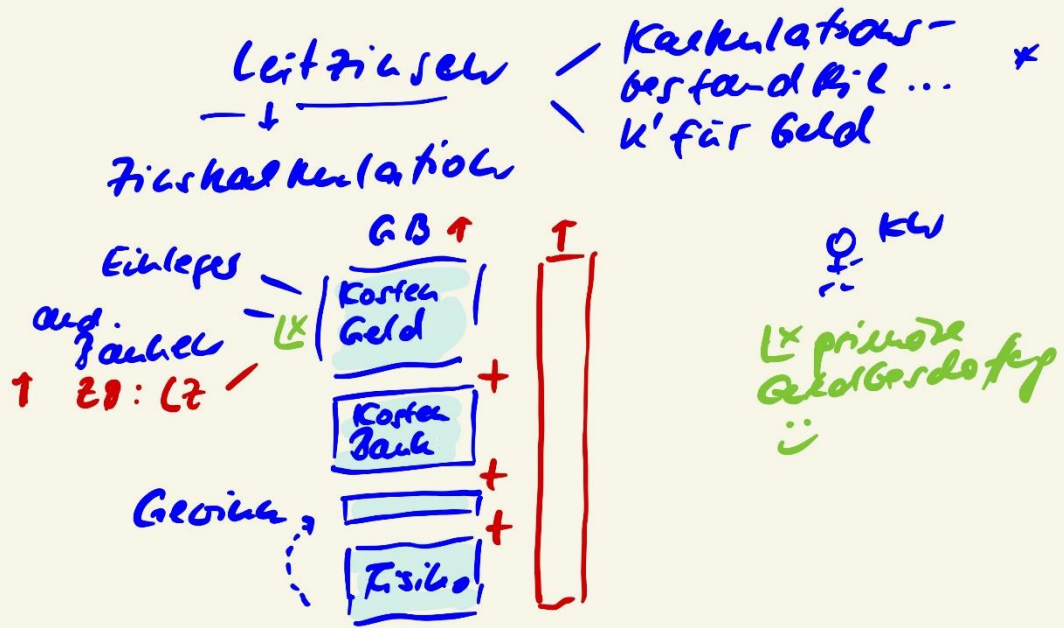 Leitzinsen
Kalkulations-
bestandteil ... *
K' für Geld
↓
Zinskalkulation
GB ↑ ↑
Einleger
and.
Banken
↑ ZB: LZ
L*
Kosten
Geld
+
Kosten
Bank
+
Gewinn
+
Risiko
KN
L* primäre
Geldbeschaffung